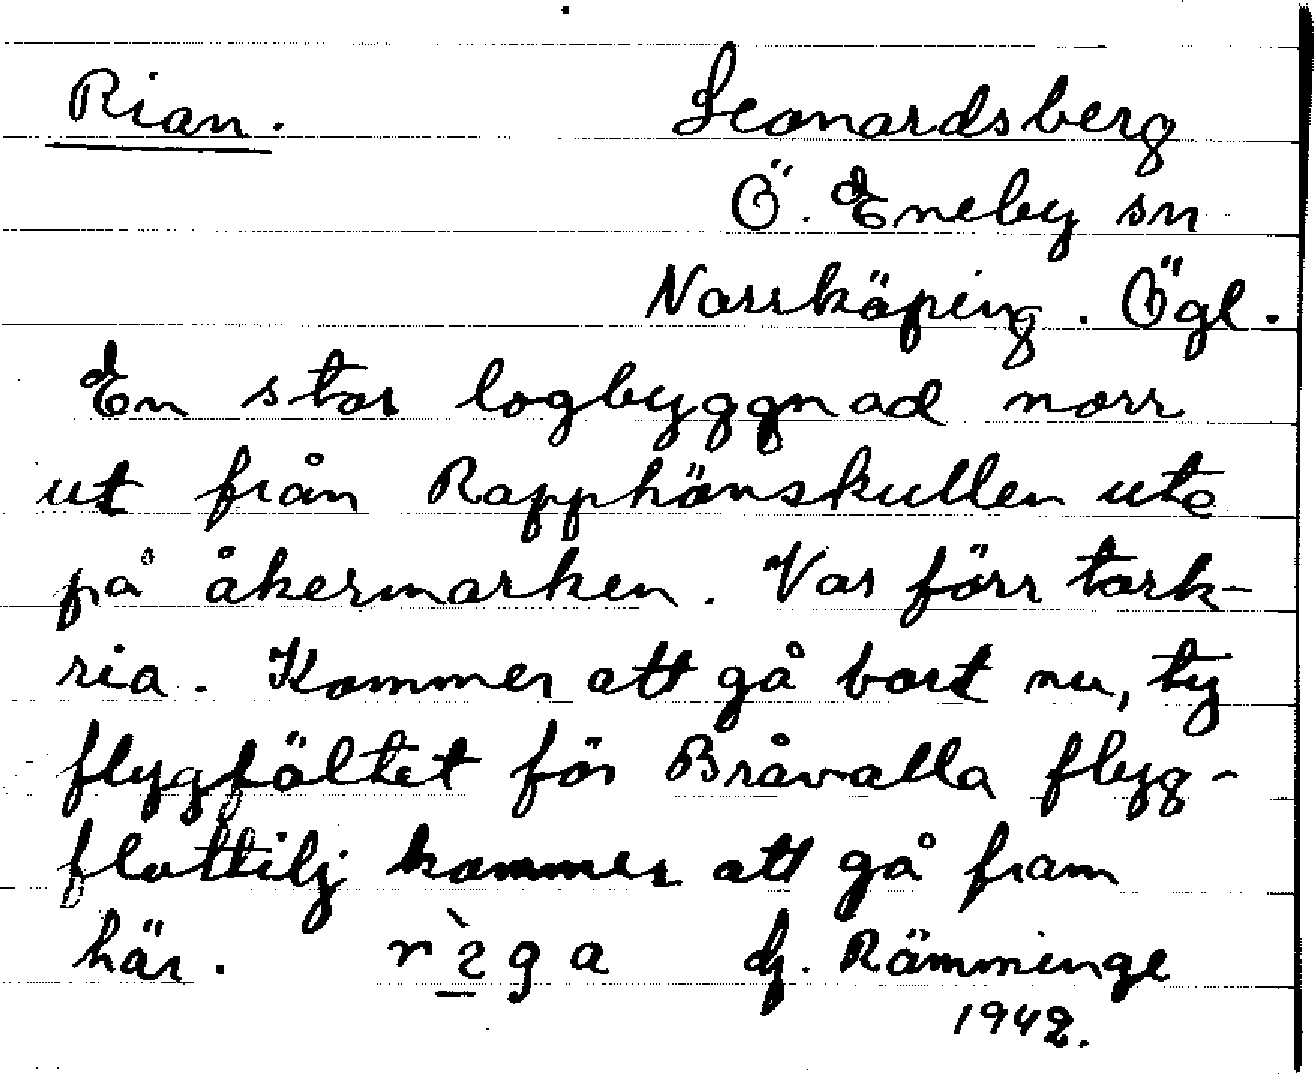 Rian. Leonardsberg
Ö. Eneby sn
Norrköping. Ögl.
En stor logbyggnad norr
ut från Rapphönskullen ute
på åkermarken. Var förr tork-
ria. Kommer att gå bort nu, ty
flygfältet för Bråvalla flyg-
flottilj kommer att gå fram
här. Rämminge
1942.